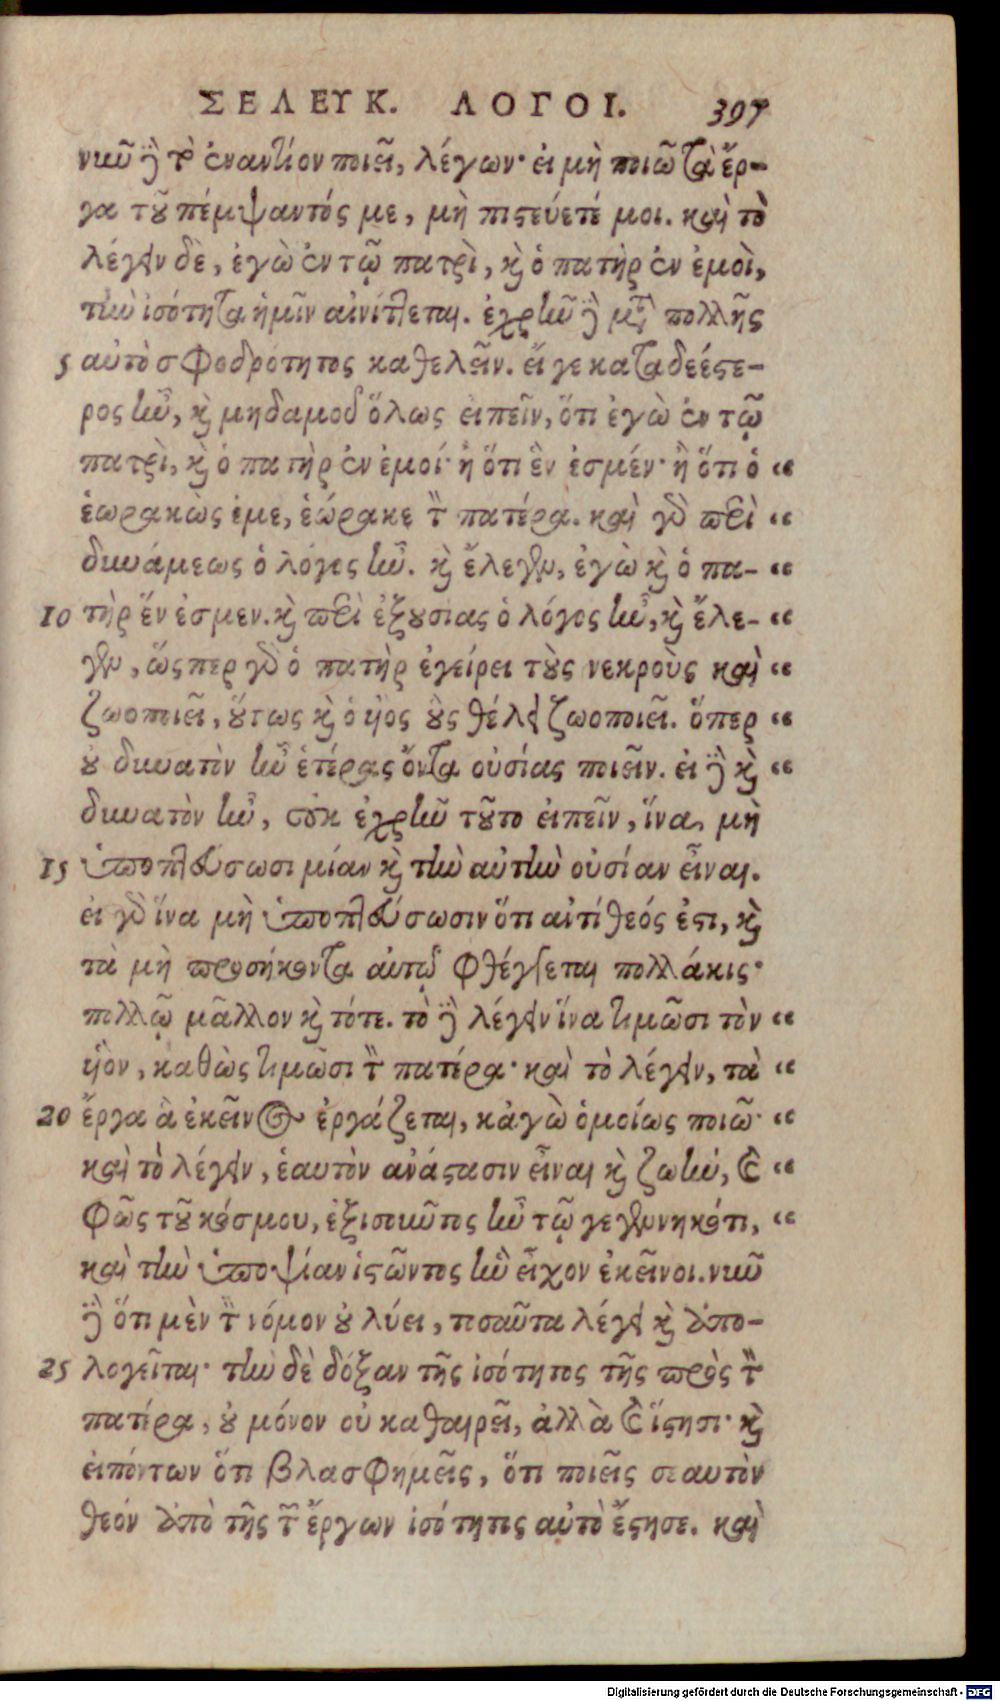 ΣΕΛΕΥΚ. ΛΟΓΟΙ. 397
νιῦ ἢ τὸ ἐναντίον ποιεῖ, λέγων· εἰ μὴ ποιῶ τὰ ἔρ-
γα τοῦ πέμψαντός με, μὴ πιστεύετέ μοι. καὶ τὸ
λέγειν δὲ, ἐγὼ ἐν τῷ πατρὶ, καὶ ὁ πατὴρ ἐν ἐμοὶ,
τὴν ἰσότητα ἡμῖν αἰνίττεται. ἐχρῆν δὲ μετὰ πολλῆς
5 αὐτὸ σφοδρότητος καθελεῖν. εἴγε καταδεέστε-
ρος ἦν, καὶ μηδαμοῦ ὅλως εἰπεῖν, ὅτι ἐγὼ ἐν τῷ
πατρὶ, καὶ ὁ πατὴρ ἐν ἐμοί· ἢ ὅτι ἓν ἐσμέν· ἢ ὅτι ὁ “
ἑωρακὼς ἐμε, ἑώρακε τὸν πατέρα. καὶ γὰρ περὶ “
δυνάμεως ὁ λόγος ἦν. καὶ ἔλεγεν, ἐγὼ καὶ ὁ πα- “
10 τὴρ ἕν ἐσμεν. καὶ περὶ ἐξουσίας ὁ λόγος ἦν, καὶ ἔλε- “
γεν, ὥςπερ γὰρ ὁ πατὴρ ἐγείρει τοὺς νεκροὺς καὶ “
ζωοποιεῖ, οὕτως καὶ ὁ ὑιος οὓς θέλει ζωοποιεῖ. ὅπερ “
οὐ δυνατὸν ἦν ἑτέρας ὄντα οὐσίας ποιεῖν. εἰ δὲ καὶ “
δυνατὸν ἦν, οὐκ ἐχρῆν τοῦτο εἰπεῖν, ἵνα μὴ
15 ὑποπτεύσωσι μίαν καὶ τὴν αὐτὴν οὐσίαν εἶναι.
εἰ γὰρ ἵνα μὴ ὑποπτεύσωσιν ὅτι αντίθεός ἐστι, καὶ
τὰ μὴ προσήκοντα αὐτῷ φθέγγεται πολλάκις·
πολλῷ μᾶλλον καὶ τότε. τὸ δὲ λέγειν ἵνα τιμῶσι τὸν “
ὑὸν, καθὼς τιμῶσι τὸν πατέρα· καὶ τὸ λέγειν, τὰ “
20 ἔργα ἃ ἐκεῖνος ἐργάζεται, κἀγὼ ὁμοίως ποιῶ· “
καὶ τὸ λέγειν, ἑαυτὸν ἀνάστασιν εἶναι καὶ ζωὴν, καὶ “
φῶς τοῦ κόσμου, ἐξισοῦντος ἦν τῷ γεγεννηκότι, “
καὶ τὴν ὑποψίαν ἱστῶντος ἣν εἶχον ἐκεῖνοι. νιῦ
δὲ ὅτι μὲν τὸν νόμον οὐ λύει, τοσαῦτα λέγει καὶ ἀπο-
25 λογεῖται· τὴν δὲ δόξαν τῆς ἰσότητος τῆς πρὸς τὸν
πατέρα, οὐ μόνον οὐ καθαιρεῖ, ἀλλὰ καὶ ἵστησι· καὶ
εἰπόντων ὅτι βλασφημεῖς, ὅτι ποιεῖς σεαυτὸν
θεόν ἀπὸ τῆς τῶν ἔργων ἰσότητος αὐτὸ ἔστησε. καὶ
Digitalisierung gefördert durch die Deutsche Forschungsgemeinschaft - DFG